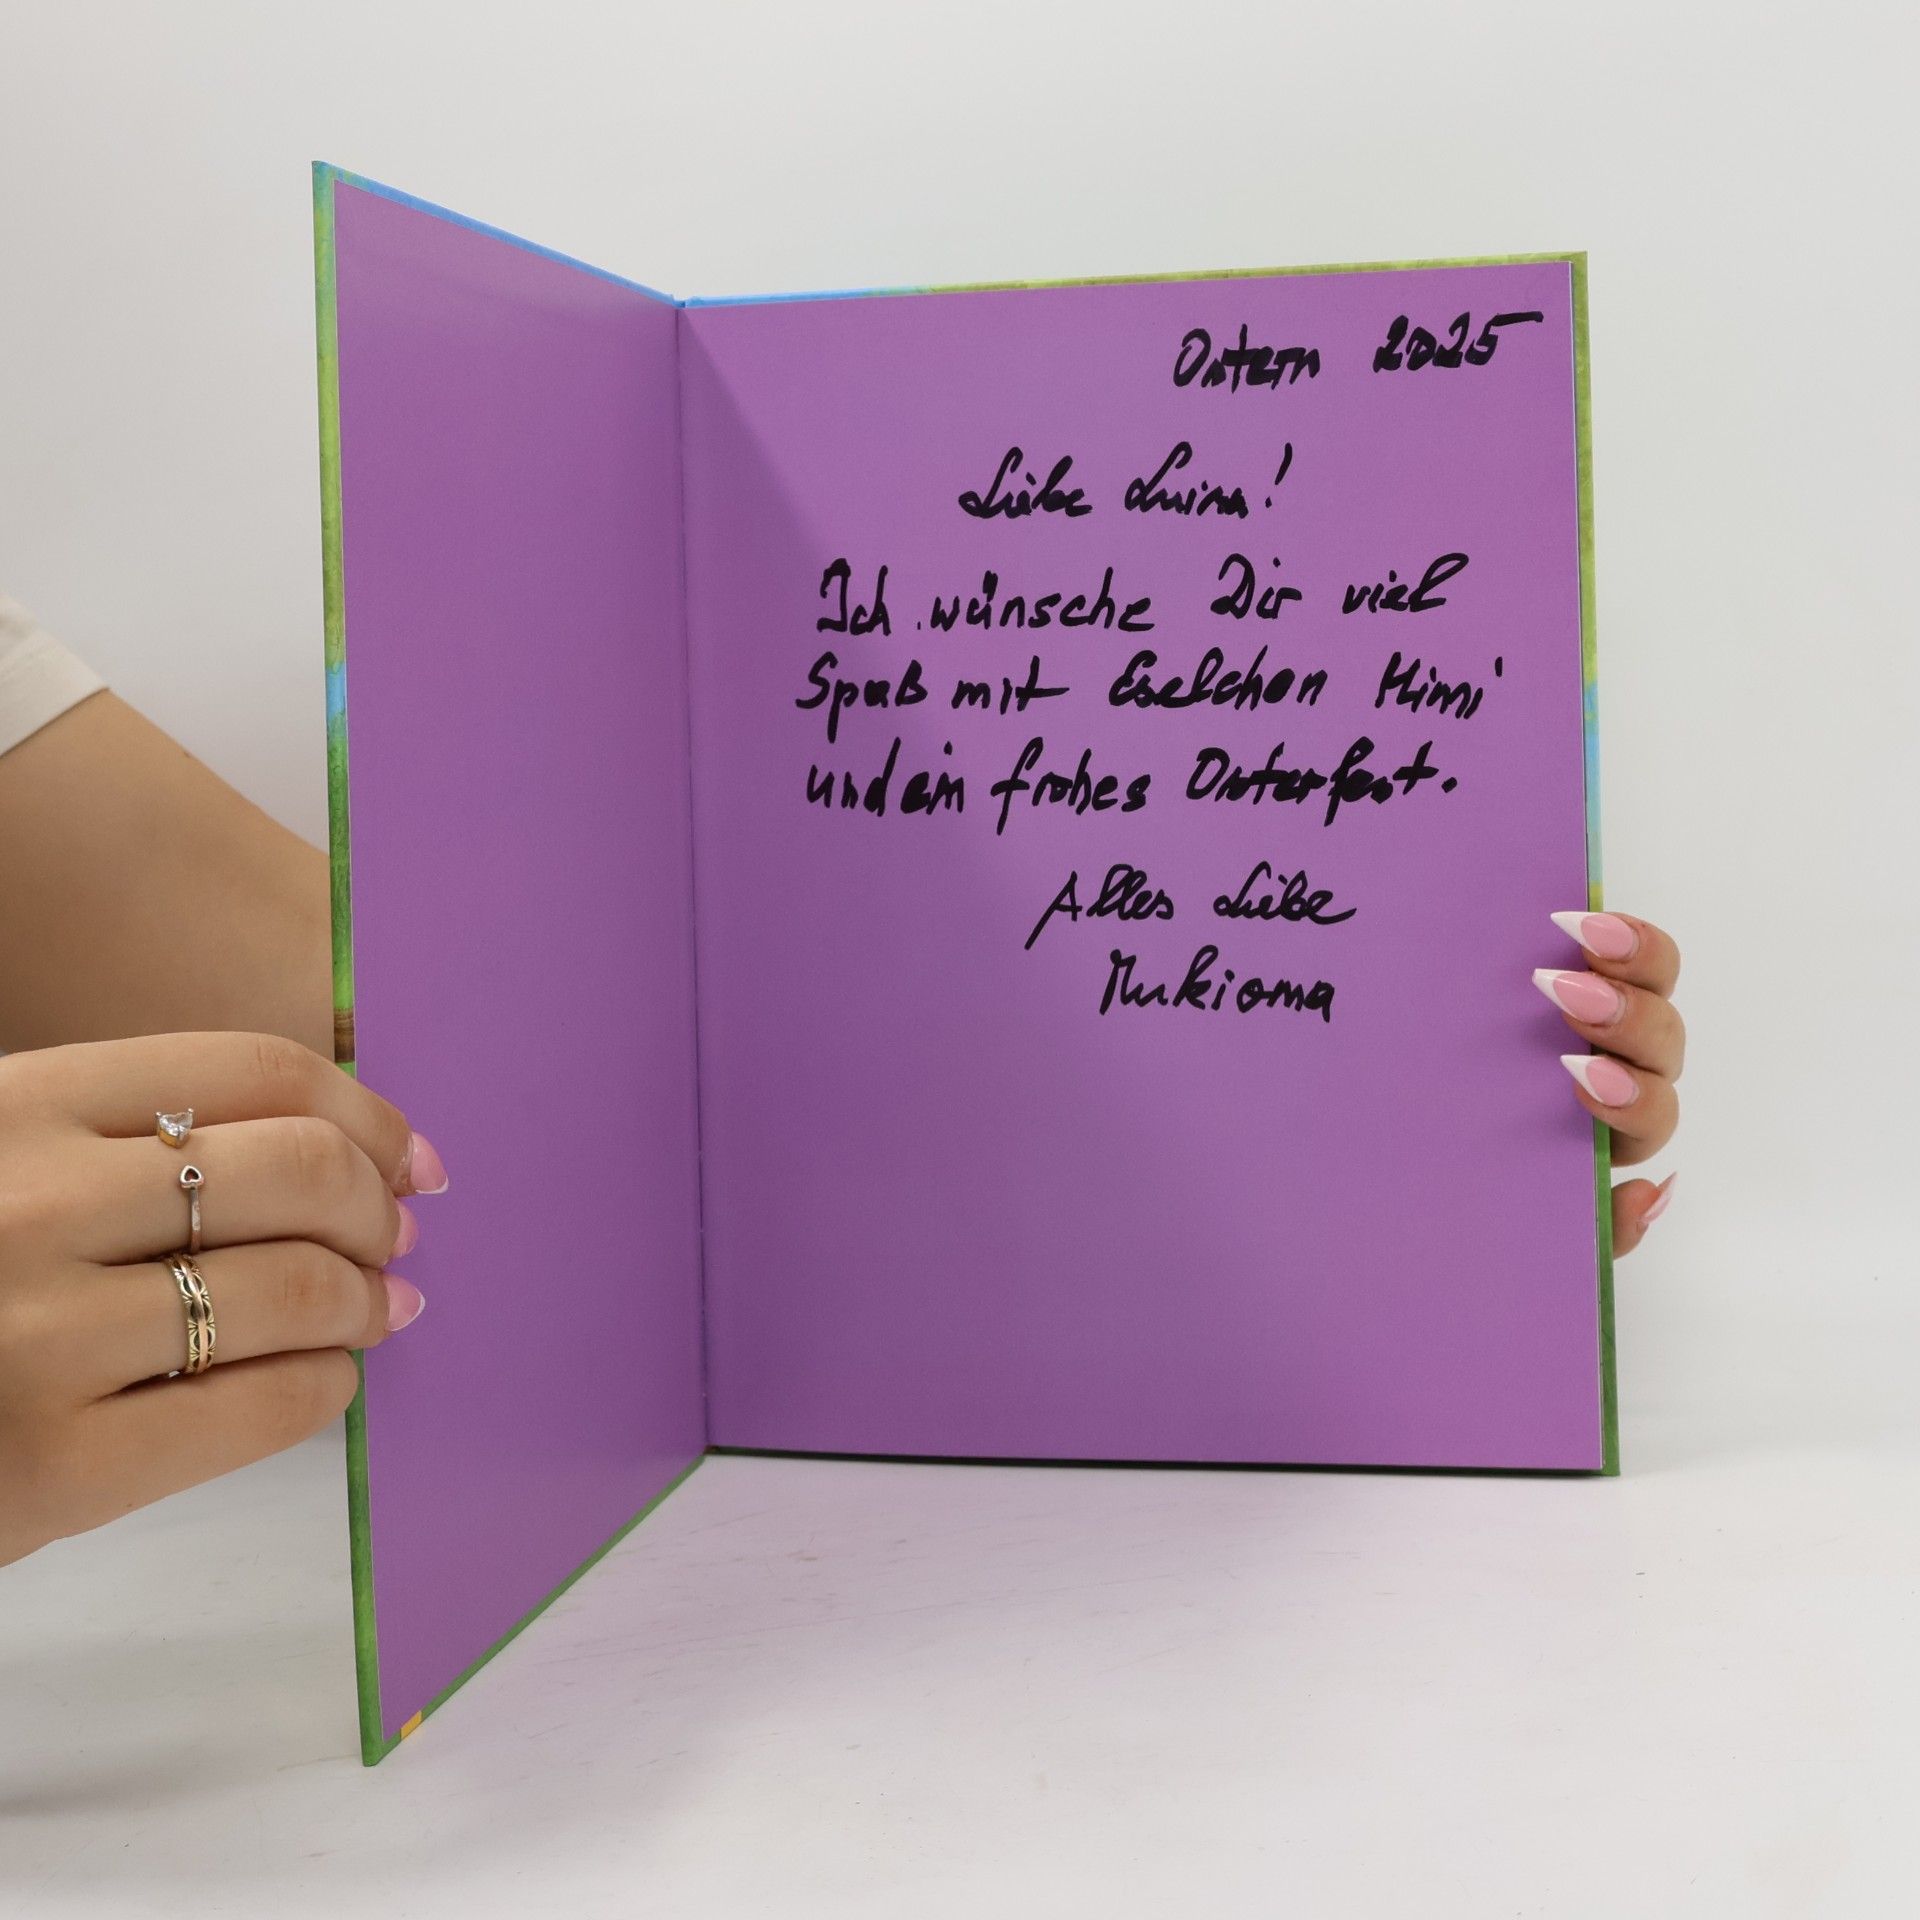 Ostern 2025
Liebe Luina!
Ich wünsche Dir viel
Spaß mit Eselchen Mimi
und ein frohes Osterfest.
Alles Liebe
Mukioma